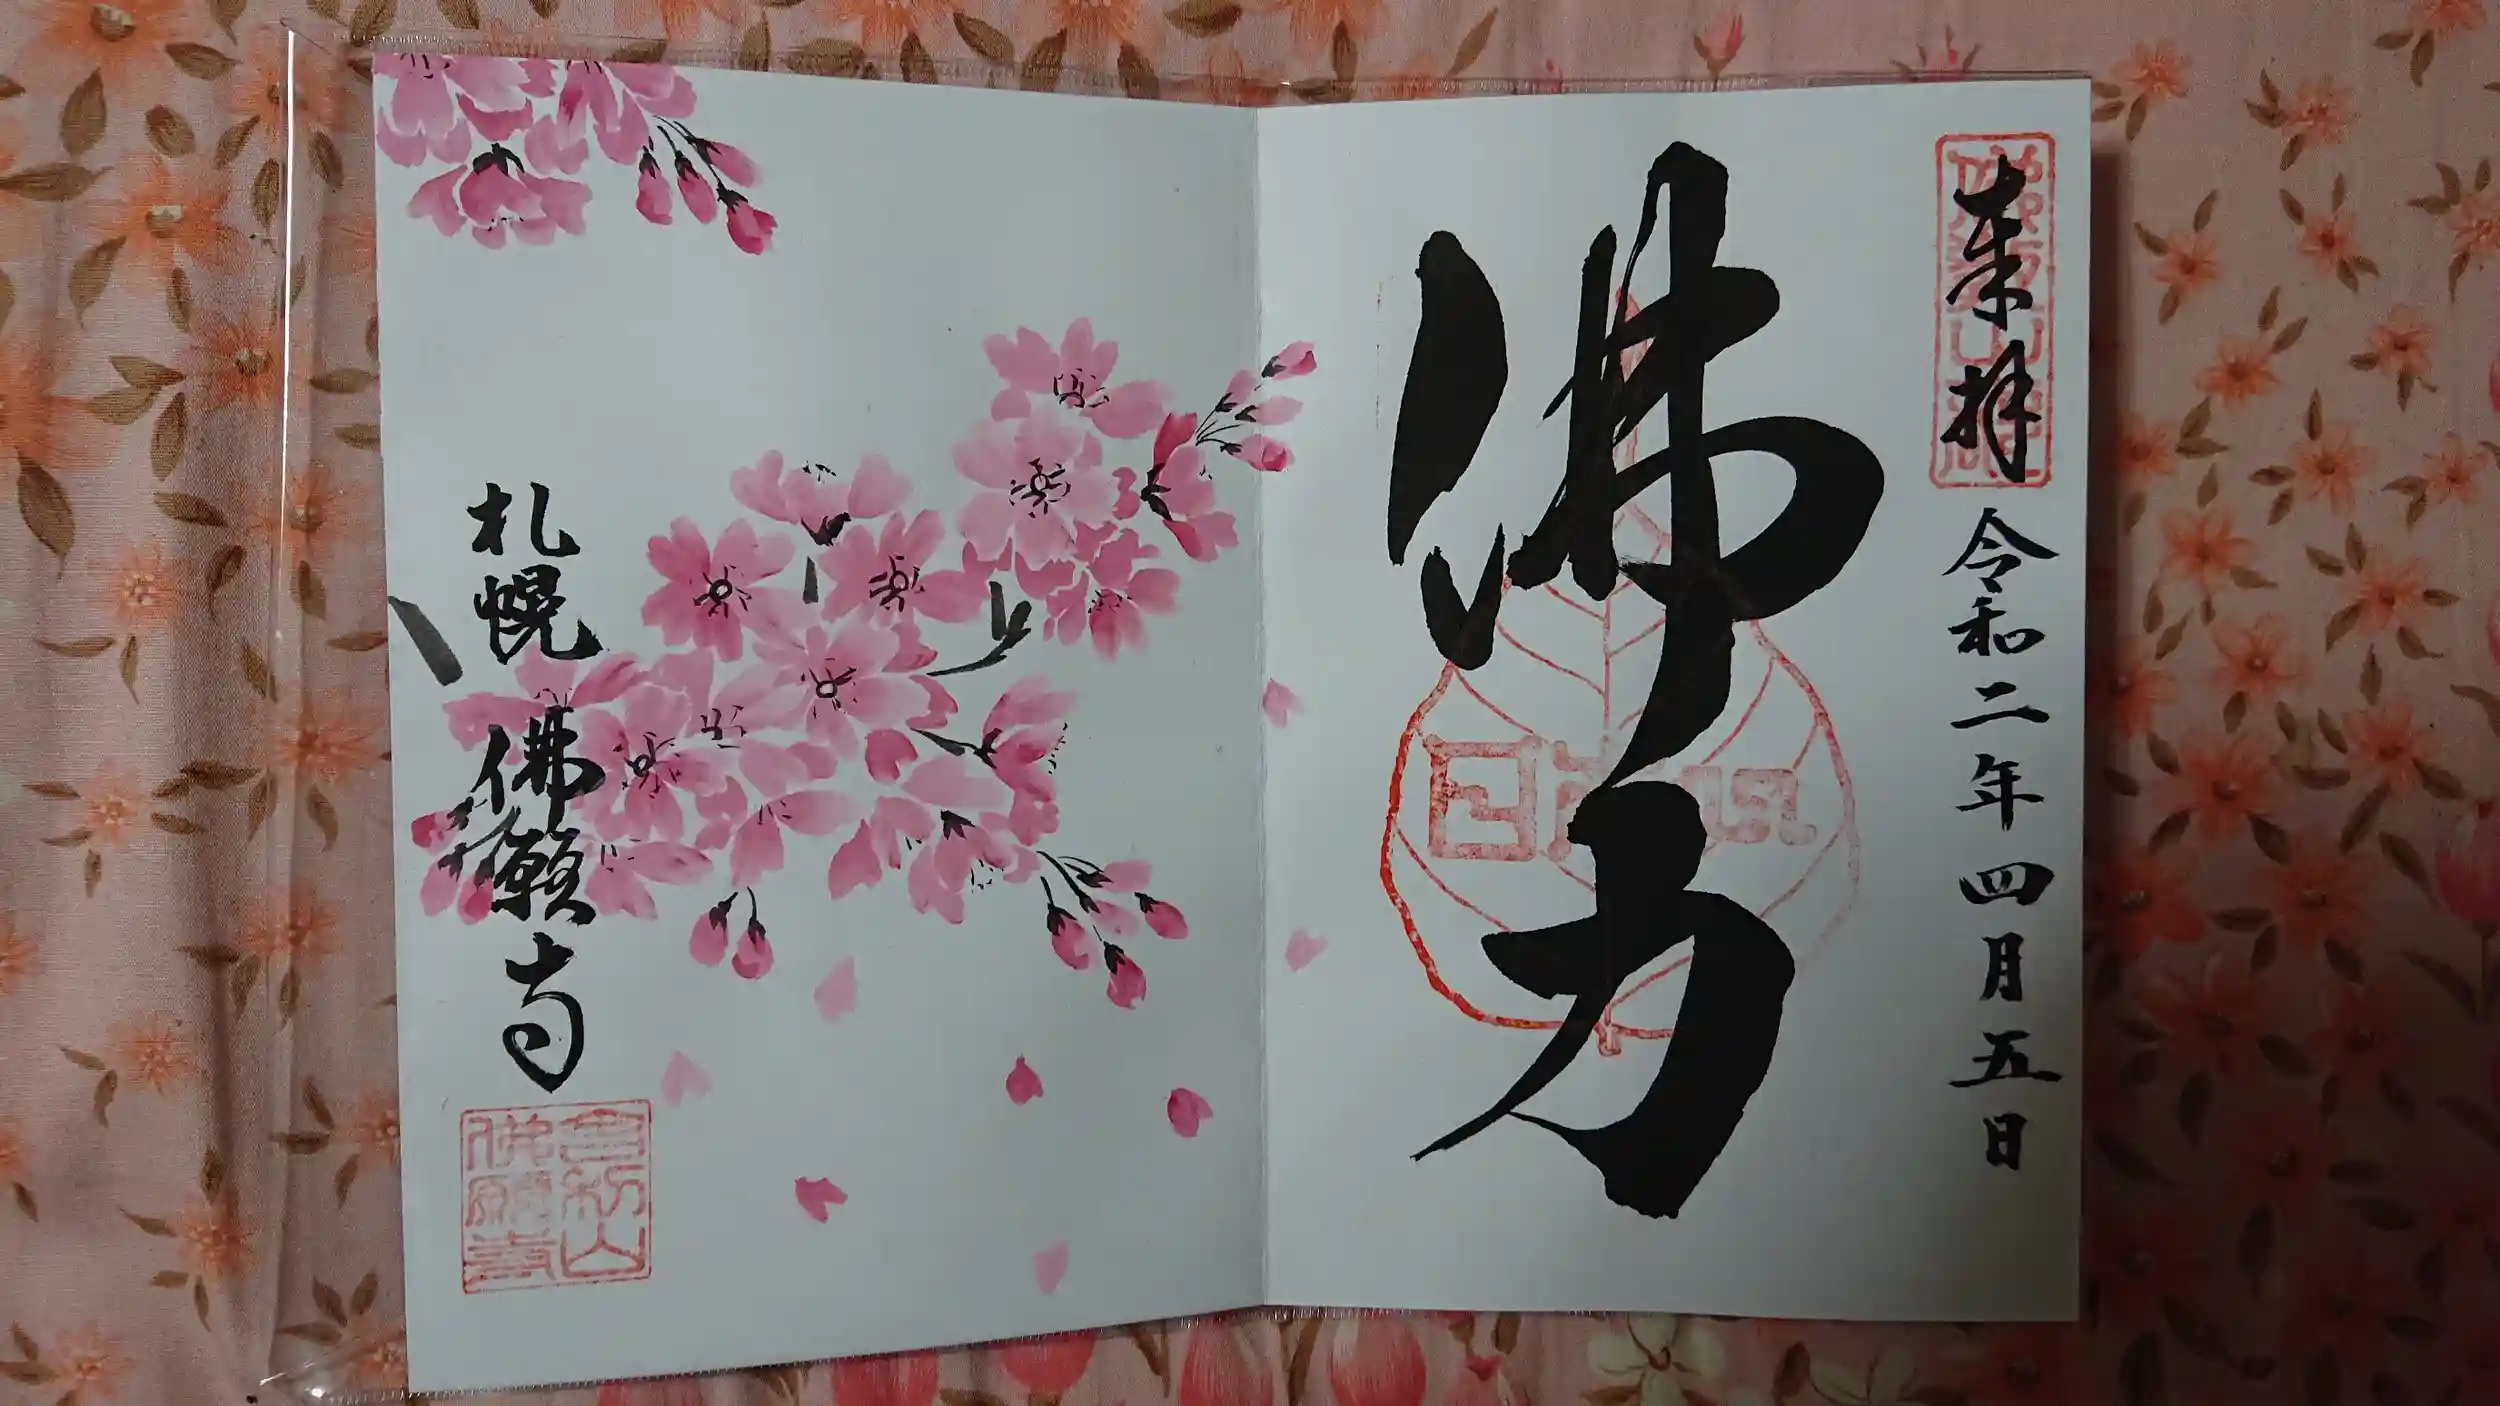 来拝
令和二年四月五日
佛力
札幌
佛願寺